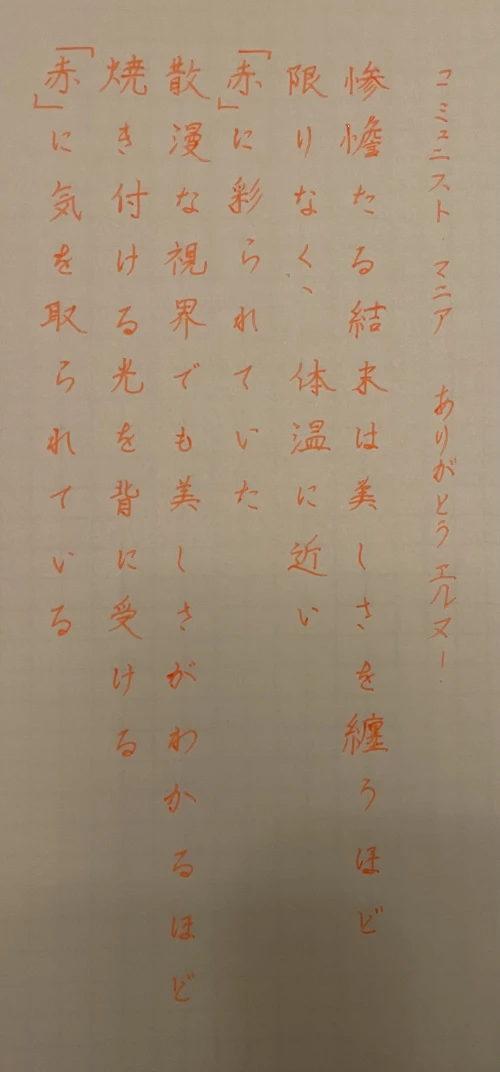 コミュニスト マニア ありがとう エルヌー
惨憺たる結末は美しさを纏うほど
限りなく、体温に近い
「赤」に彩られていた
散漫な視界でも美しさがわかるほど
焼き付ける光を背に受ける
「赤」に気を取られている